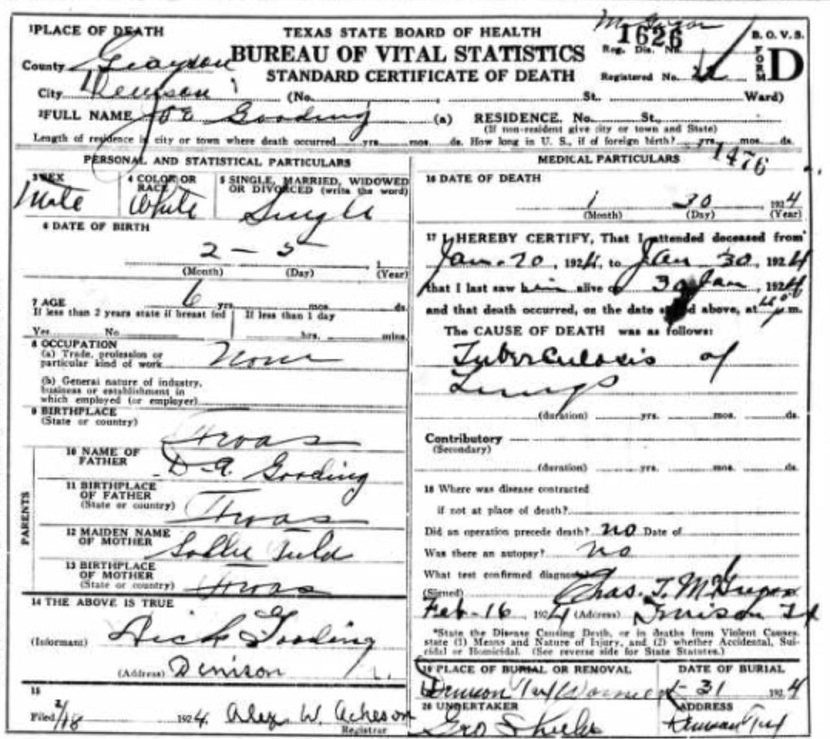 McGregor
TEXAS STATE BOARD OF HEALTH
BUREAU OF VITAL STATISTICS
STANDARD CERTIFICATE OF DEATH
1626
Reg. Dis. No.
Registered No. 22
B. O. V. S.
FORM D
1PLACE OF DEATH
County Grayson
City Denison (No. , St. Ward)
2FULL NAME J E Gooding (a) RESIDENCE. No. St.,
(If non-resident give city or town and State)
Length of residence in city or town where death occurred yrs. mos. ds. How long in U. S., if of foreign birth? yrs. mos. ds.
PERSONAL AND STATISTICAL PARTICULARS
3 SEX
Male
4 COLOR OR RACE
White
5 SINGLE, MARRIED, WIDOWED
OR DIVORCED (write the word)
Single
6 DATE OF BIRTH
2 - 5
(Month) (Day) 1 (Year)
7 AGE 6 yrs. mos. ds.
If less than 2 years state if breast fed
Yes No
If less than 1 day
hrs. mins.
8 OCCUPATION
(a) Trade, profession or
particular kind of work None
(b) General nature of industry,
business or establishment in
which employed (or employer)
9 BIRTHPLACE
(State or country)
Texas
PARENTS
10 NAME OF
FATHER
D. A. Gooding
11 BIRTHPLACE
OF FATHER
(State or country) Texas
12 MAIDEN NAME
OF MOTHER
Sallie
13 BIRTHPLACE
OF MOTHER
(State or country) Texas
14 THE ABOVE IS TRUE
(Informant) Dick Gooding
(Address) Denison
15
Filed 2/18 1924. Alex W. Acheson
Registrar
MEDICAL PARTICULARS
1476
16 DATE OF DEATH
1 30 1924
(Month) (Day) (Year)
17 I HEREBY CERTIFY, That I attended deceased from
Jan. 20, 1924, to Jan 30, 1924
that I last saw him alive on 30 Jan, 1924
and that death occurred, on the date stated above, at m.
The CAUSE OF DEATH was as follows:
Tuberculosis of
Lungs
(duration) yrs. mos. ds.
Contributory
(Secondary)
(duration) yrs. mos. ds.
18 Where was disease contracted
if not at place of death?
Did an operation precede death? no Date of
Was there an autopsy? no
What test confirmed diagnosis
(Signed) Chas. T. McGregor
Feb-16 1924 (Address) Denison Tx
*State the Disease Causing Death, or in deaths from Violent Causes,
state (1) Means and Nature of Injury, and (2) whether Accidental, Sui-
cidal or Homicidal. (See reverse side for State Statutes.)
19 PLACE OF BURIAL OR REMOVAL
Denison Tex
DATE OF BURIAL
1-31 1924
20 UNDERTAKER
Geo
ADDRESS
Denison Tex